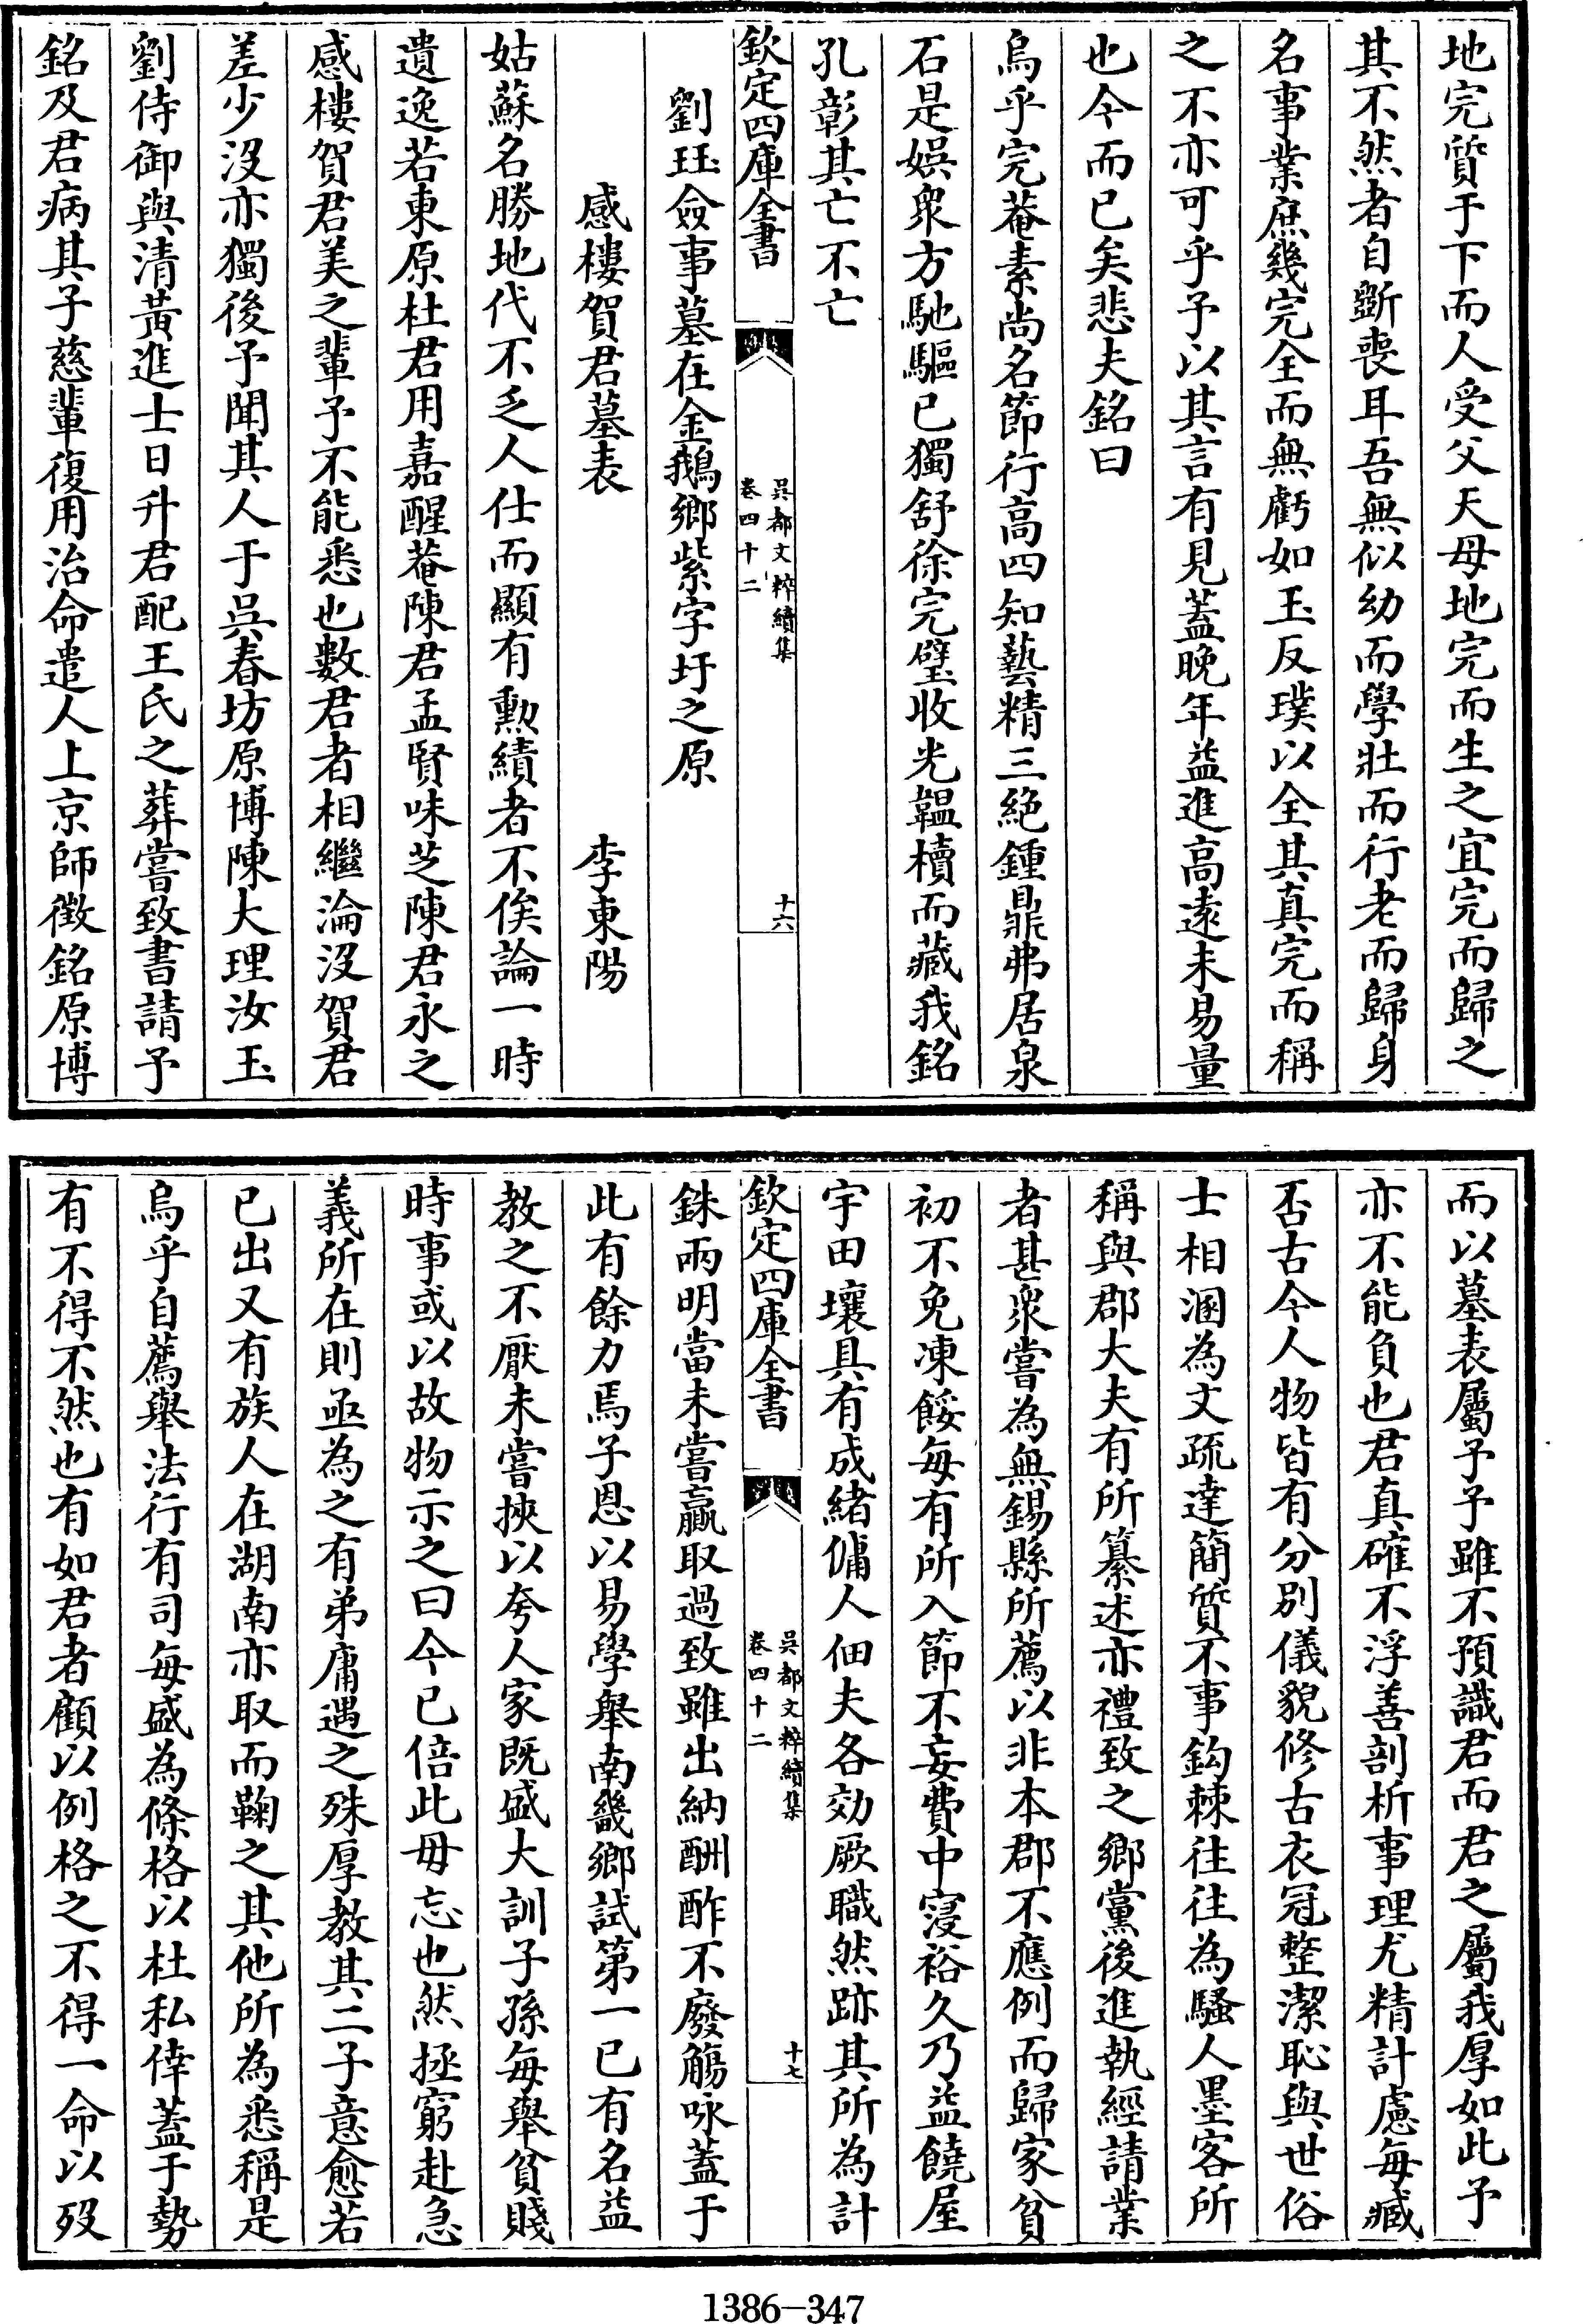 地完質于下而人受父天母地完而生之宜完而歸之
其不然者自斵喪耳吾無似幼而學壯而行老而歸身
名事業庶幾完全而無虧如玉反璞以全其真完而稱
之不亦可乎予以其言有見蓋晚年益進高遠未易量
也今而已矣悲夫銘曰
烏乎完菴素尚名節行高四知藝精三絶鍾鼎弗居泉
石是娛衆方馳驅已獨舒徐完璧收光韞櫝而藏我銘
孔彰其亡不亡
欽定四庫全書
吳都文粹續集
卷四十二
十六
劉珏僉事墓在金鵝鄉紫字圩之原
感樓賀君墓表 李東陽
姑蘇名勝地代不乏人仕而顯有勲績者不俟論一時
遺逸若東原杜君用嘉醒菴陳君孟賢味芝陳君永之
感樓賀君美之輩予不能悉也數君者相繼淪沒賀君
差少沒亦獨後予聞其人于吳春坊原博陳大理汝玉
劉侍御與清黃進士日升君配王氏之葬嘗致書請予
銘及君病其子慈輩復用治命遣人上京師徵銘原博
而以墓表屬予予雖不預識君而君之屬我厚如此予
亦不能負也君真確不浮善剖析事理尤精計慮每臧
否古今人物皆有分别儀貌修古衣冠整潔恥與世俗
士相溷為文疏達簡質不事鈎棘往往為騷人墨客所
稱與郡大夫有所纂述亦禮致之鄉黨後進執經請業
者甚衆嘗為無錫縣所薦以非本郡不應例而歸家貧
初不免凍餒每有所入節不妄費中寖裕久乃益饒屋
宇田壤具有成緒傭人佃夫各効厥職然跡其所為計
欽定四庫全書
吳都文粹續集
卷四十二
十七
銖兩明當未嘗贏取過致雖出納酬酢不廢觴咏蓋于
此有餘力焉子恩以易學舉南畿鄉試第一已有名益
教之不厭未嘗挾以夸人家既盛大訓子孫每舉貧賤
時事或以故物示之曰今已倍此毋忘也然拯窮赴急
義所在則亟為之有弟庸遇之殊厚教其二子意愈若
已出又有族人在湖南亦取而鞠之其他所為悉稱是
烏乎自薦舉法行有司每盛為條格以杜私倖蓋于勢
有不得不然也有如君者顧以例格之不得一命以歿
1386-347